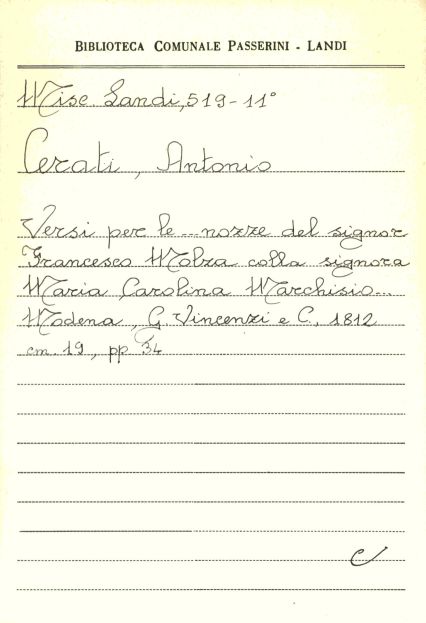 BIBLIOTECA COMUNALE PASSERINI - LANDI
Misc. Landi, 519-11°
Cerati, Antonio
Versi per le... nozze del signor
Francesco Molza colla signora
Maria Carolina Marchisio...
Modena, G. Vincenzi e C., 1812
cm. 19, pp 34
C